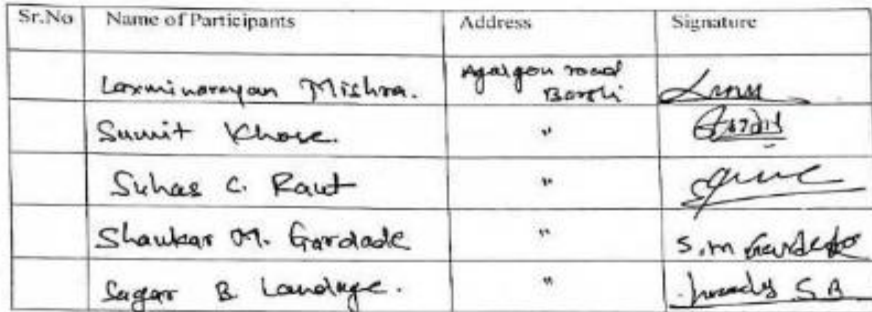 Sr.No Name of Participants Address Signature
Laxminarayan Mishra. Agalgon road
Barshi
Sumit Khose. "
Suhas C. Raut "
Shankar M. Gardade " S.M Gardade
Sagar B. Landage. " S B